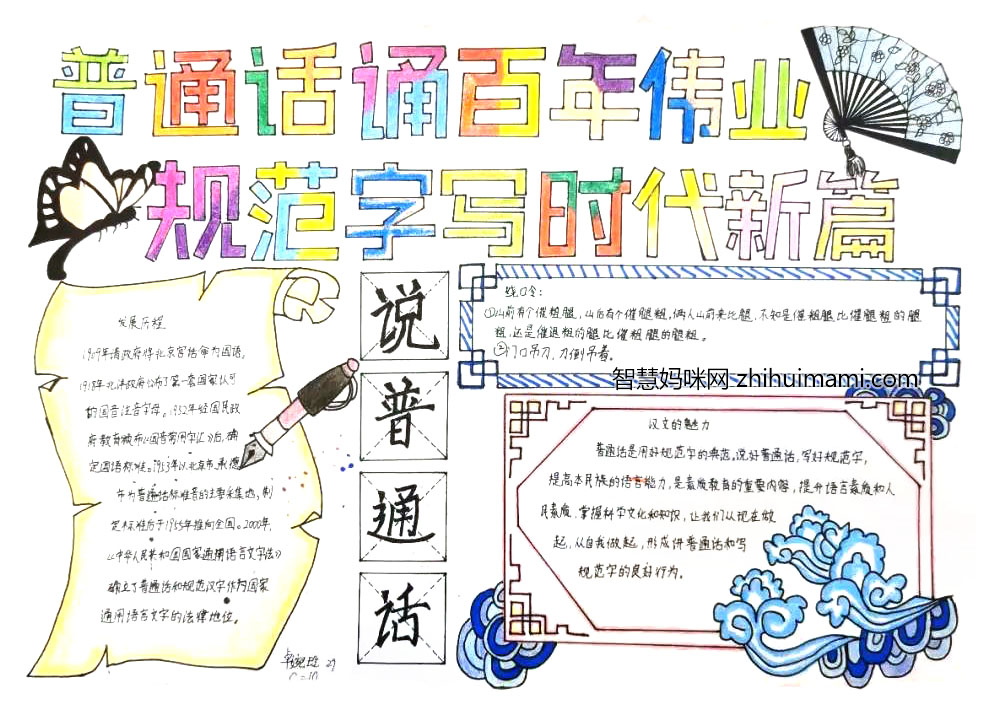 普通话诵百年伟业
规范字写时代新篇
发展历程
1909年清政府将北京官话命为国语。
1918年北洋政府公布了第一套国家认可
的国音注音字母。1932年经国民政
府教育部颁布《国音常用字汇》后,确
定国语标准。1953年以北京市、承德
市为普通话标准音的主要采集地,制
定标准后于1955年推向全国。2000年,
《中华人民共和国国家通用语言文字法》
确立了普通话和规范汉字作为国家
通用语言文字的法律地位。
说
普
通
话
绕口令:
①山前有个崔粗腿,山后有个崔腿粗,俩人山前来比腿,不知是崔粗腿比崔腿粗的腿
粗,还是崔腿粗的腿比崔粗腿的腿粗。
②门口吊刀,刀倒吊着。
智慧妈咪网 zhihuimami.com
汉文的魅力
普通话是用好规范字的典范。说好普通话,写好规范字,
提高本民族的语言能力,是素质教育的重要内容,提升语言素质和人
民素质,掌握科学文化和知识,让我们从现在做
起,从自我做起,形成讲普通话和写
规范字的良好行为。